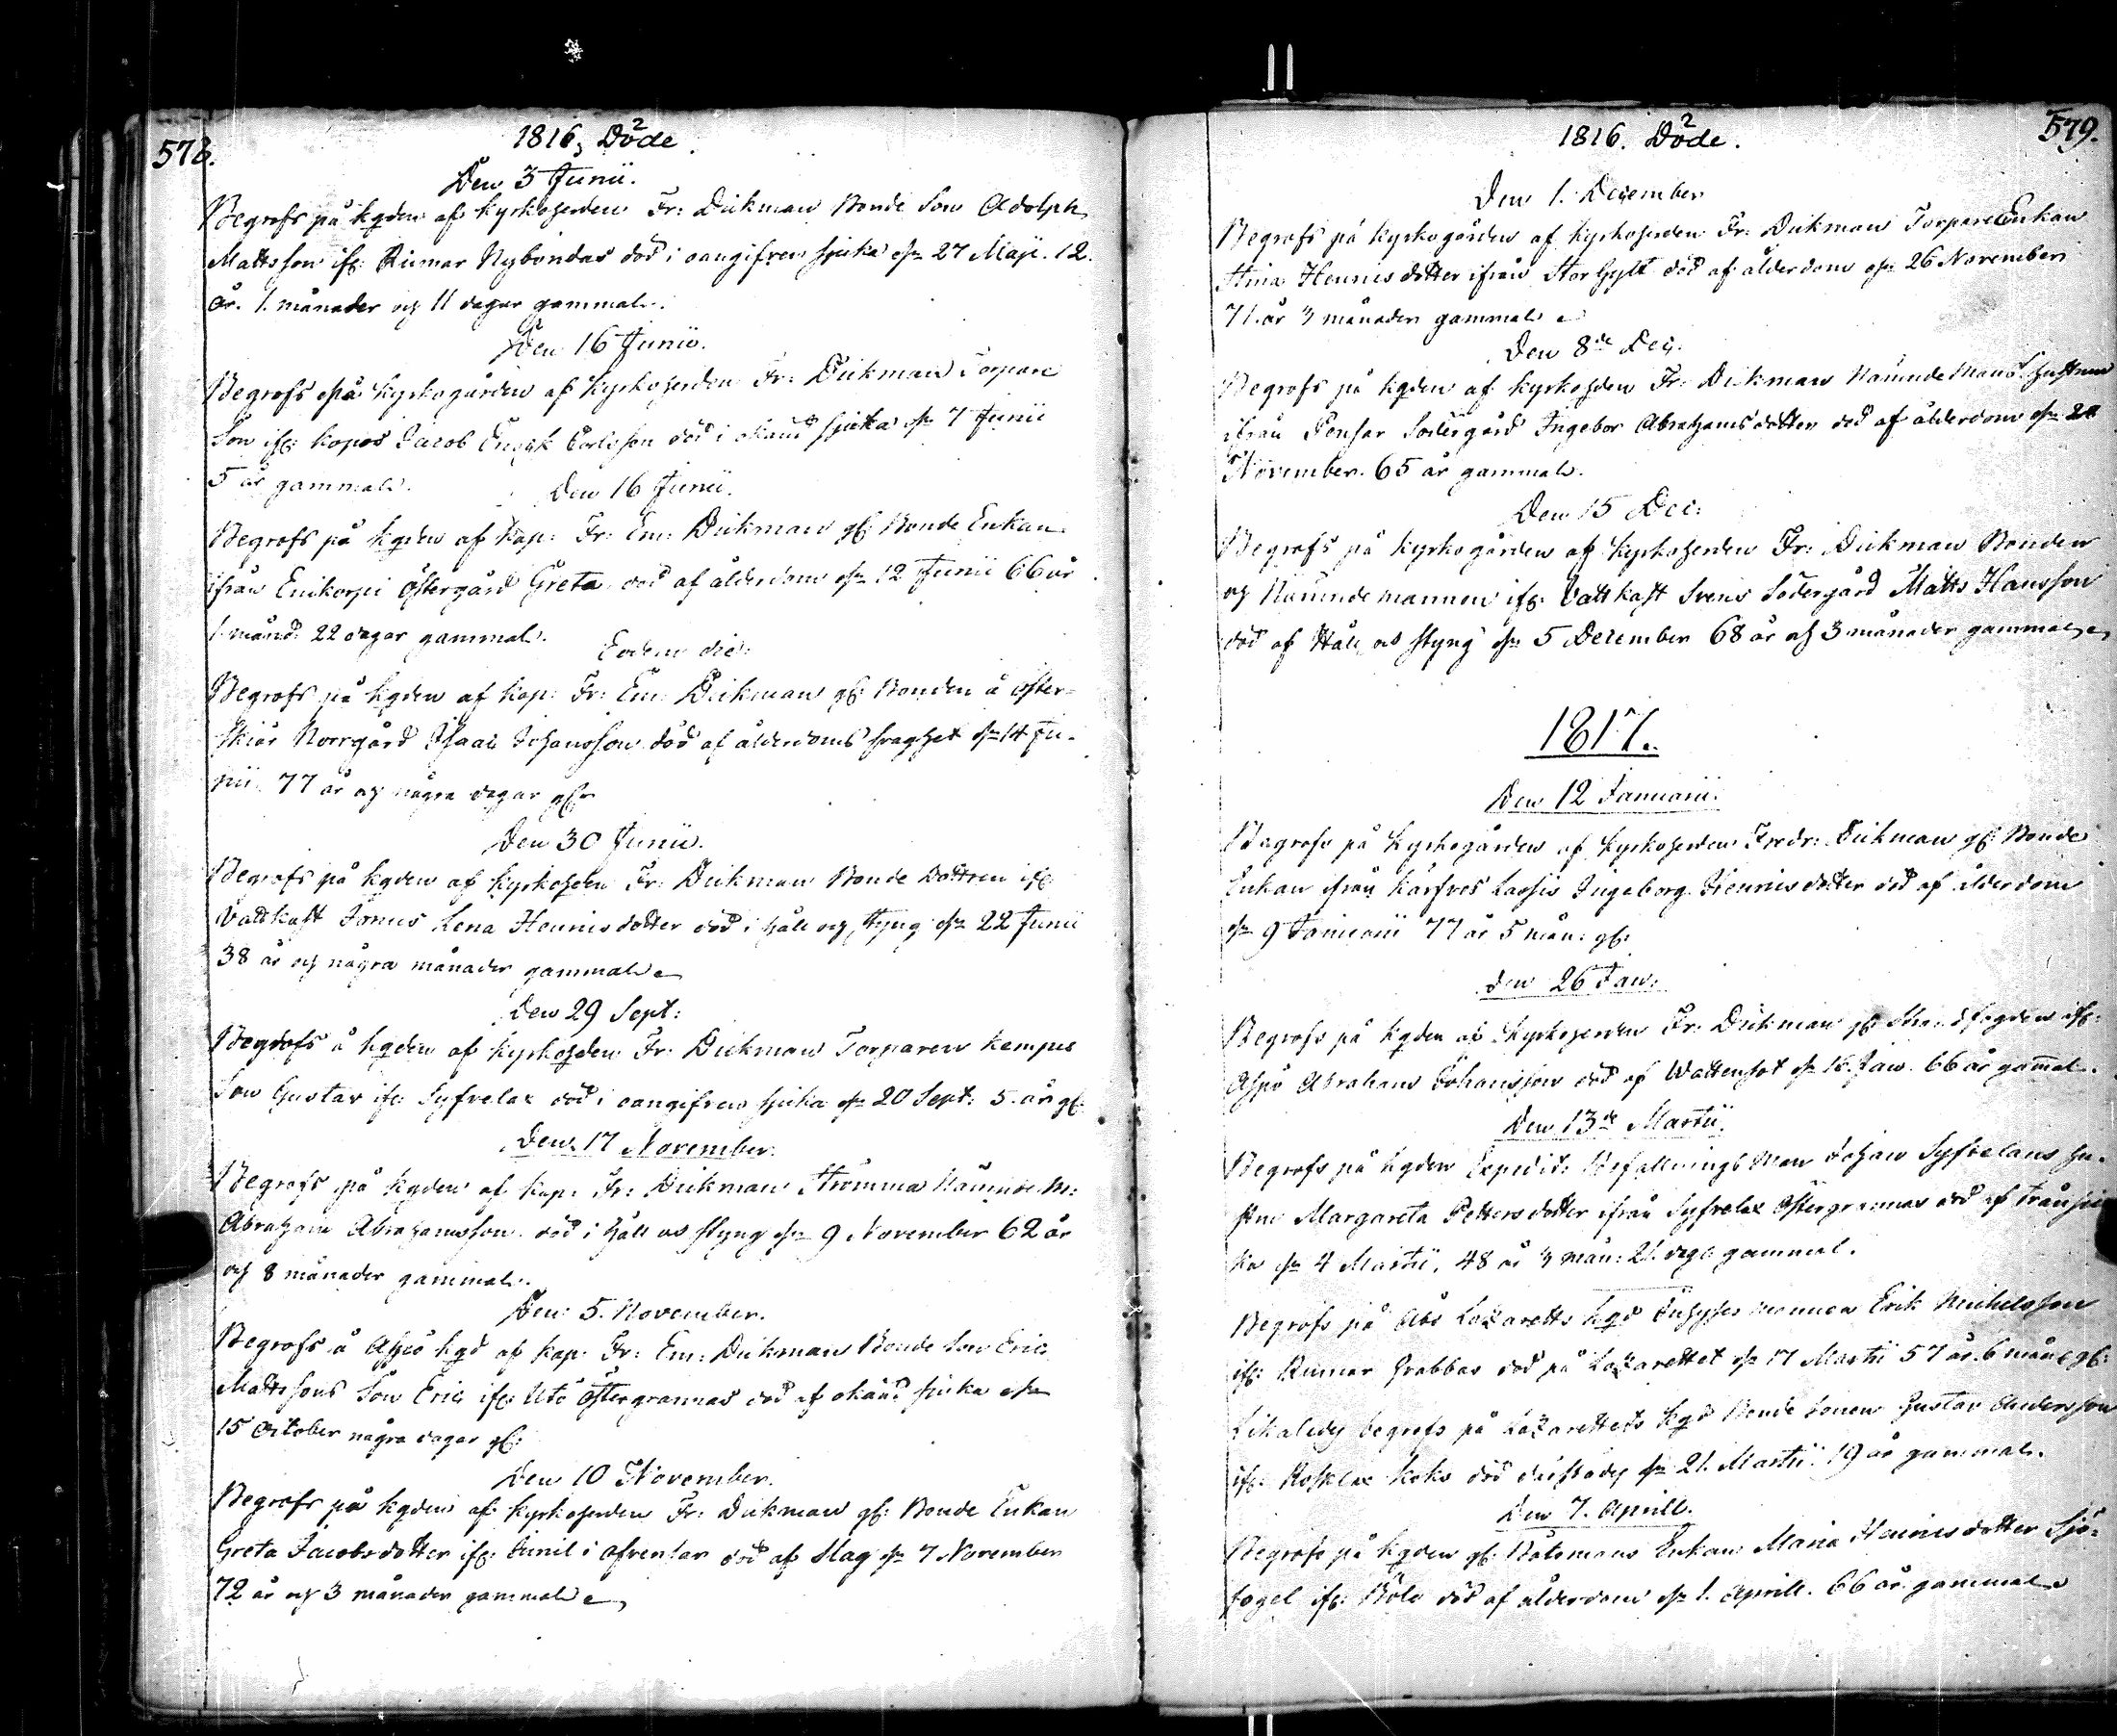 578.
1816, Döde
Den 3 Junii.
Begrofs på kgden af Kyrkoherden Fr: Dickman Bonde Son Adolph
Mattsson ifr: Rumar Nybondas död i oangifven sjuka d. 27 Maji. 12.
år. 1. månader och 11 dagar gammal.
Den 16 Junii.
Begrofs på Kyrkogården af Kyrkoherden Fr: Dickman Torpare
Son ifr: Kopos Jacob Carlsson död i okänd sjuka d. 7 Junii
5 år gammal.
Den 16 Junii.
Begrofs på kgden af Kap: Fr: Em: Dickman gl: Bonde Enkan
ifrån Enikorpi Östergård Greta död af ålderdom d. 12 Junii 66 år
1 månd: 22 dagar gammal.
Eodem die:
Begrofs på kgden af Kap: Fr: Em: Dickman gl: Bonden å Öster-
skiär Norrgård Isaac Johansson död af ålderdoms svaghet d. 14 Ju-
nii. 77 år och några dagar gl:
Den 30 Junii.
Begrofs på kgden af Kyrkohden Fr: Dickman Bonde Dottren ifr:
Vattkast Jönus Lena Henricsdotter död i håll och styng d. 22 Junii
38 år och några månader gammal
Den 29 Sept:
Begrofs å kgden af Kyrkohden Fr: Dickman Torparen Kempes
Son Gustav ifr: Syfvelax död i oangifven sjuka d. 20 Sept: 5. år gl:
Den 17 November.
Begrofs på kgden af Kap: Fr: Dickman Strömma Nämnde M:
Abraham Abrahamsson död i håll os styng d. 9 November 62 år
och 8 månader gammal.
Den 5. November.
Begrofs å Aspö kgd af Kap: Fr: Em: Dickman Bonde Son Eric
Mattssons Son Eric ifr: Utö Östergrannas död af okänd sjuka d.
15 October några dagar gl:
Den 10 November.
Begrofs på kgden af Kyrkoherden Fr: Dickman gl: Bonde Enkan
Greta Jacobsdotter ifr: död af Slag d. 7 November
72 år och 3 månader gammal
579.
1816. Döde.
Den 1. December
Begrofs på Kyrkogården af Kyrkoherden Fr: Dickman Torpare Enkan
Stina Henricsdotter ifrån Stor Gylt död af ålderdom d. 26 November
71. år 3 månader gammal
Den 8de Dec:
Begrofs på kgden af Kyrkohden Fr: Dickman Nämnde Mans hustrun
ifrån Pensar Södergård Ingebor Abrahamsdotter död af ålderdom d.
November. 65 år gammal.
Den 15 Dec:
Begrofs på Kyrkogården af Kyrkoherden Fr: Dickman Bonden
och Nämndemannen ifr: Vattkast Svens Södergård Matts Hansson
död af Håll os styng d. 5 December 68 år och 3 månader gammal
1817.
Den 12 Januarii.
Begrofs på Kyrkogården af Kyrkoherden Fredr: Dickman gl: Bonde
Enkan ifrån Kärfves Lassis Ingeborg Henricsdotter död af ålderdom
d. 9 Januarii 77 år 5 mån: gl:
den 26 Jan:
Begrofs på kgden af Kyrkoherden Fr: Dickman gl: ifr:
Aspö Abraham Johansson död af Wattensot d. 16. Jan. 66 år gammal.
Den 13de Martii.
Begrofs på kgden Expedit: Befallnings Man Johan Syfvelans hu-
stru Margareta Pettersdotter ifrån Syfvelax Östergrannas död af Trånsju
ka d. 4 Martii, 48 år 3 mån: 21. dagar gammal.
Begrofs på Åbo Lazaretts kgd Inhyses mannen Erik Michelsson
ifr: Rumar Grabbas död på Lazarettet d. 17 Martii 57 år. 6 mån: gl:
Likaledes begrofs på Lazarettets kgd Bonde Sonen Gustav Andersson
ifr: Rosklax Koko död därstädes d. 21. Martii. 19 år gammal.
Den 7. Aprill.
Begrofs på kgden gl: Båtsmans Enkan Maria Henricsdotter Sjö-
fogel ifr: Bölo död af ålderdom d. 1. Aprill. 66 år gammal